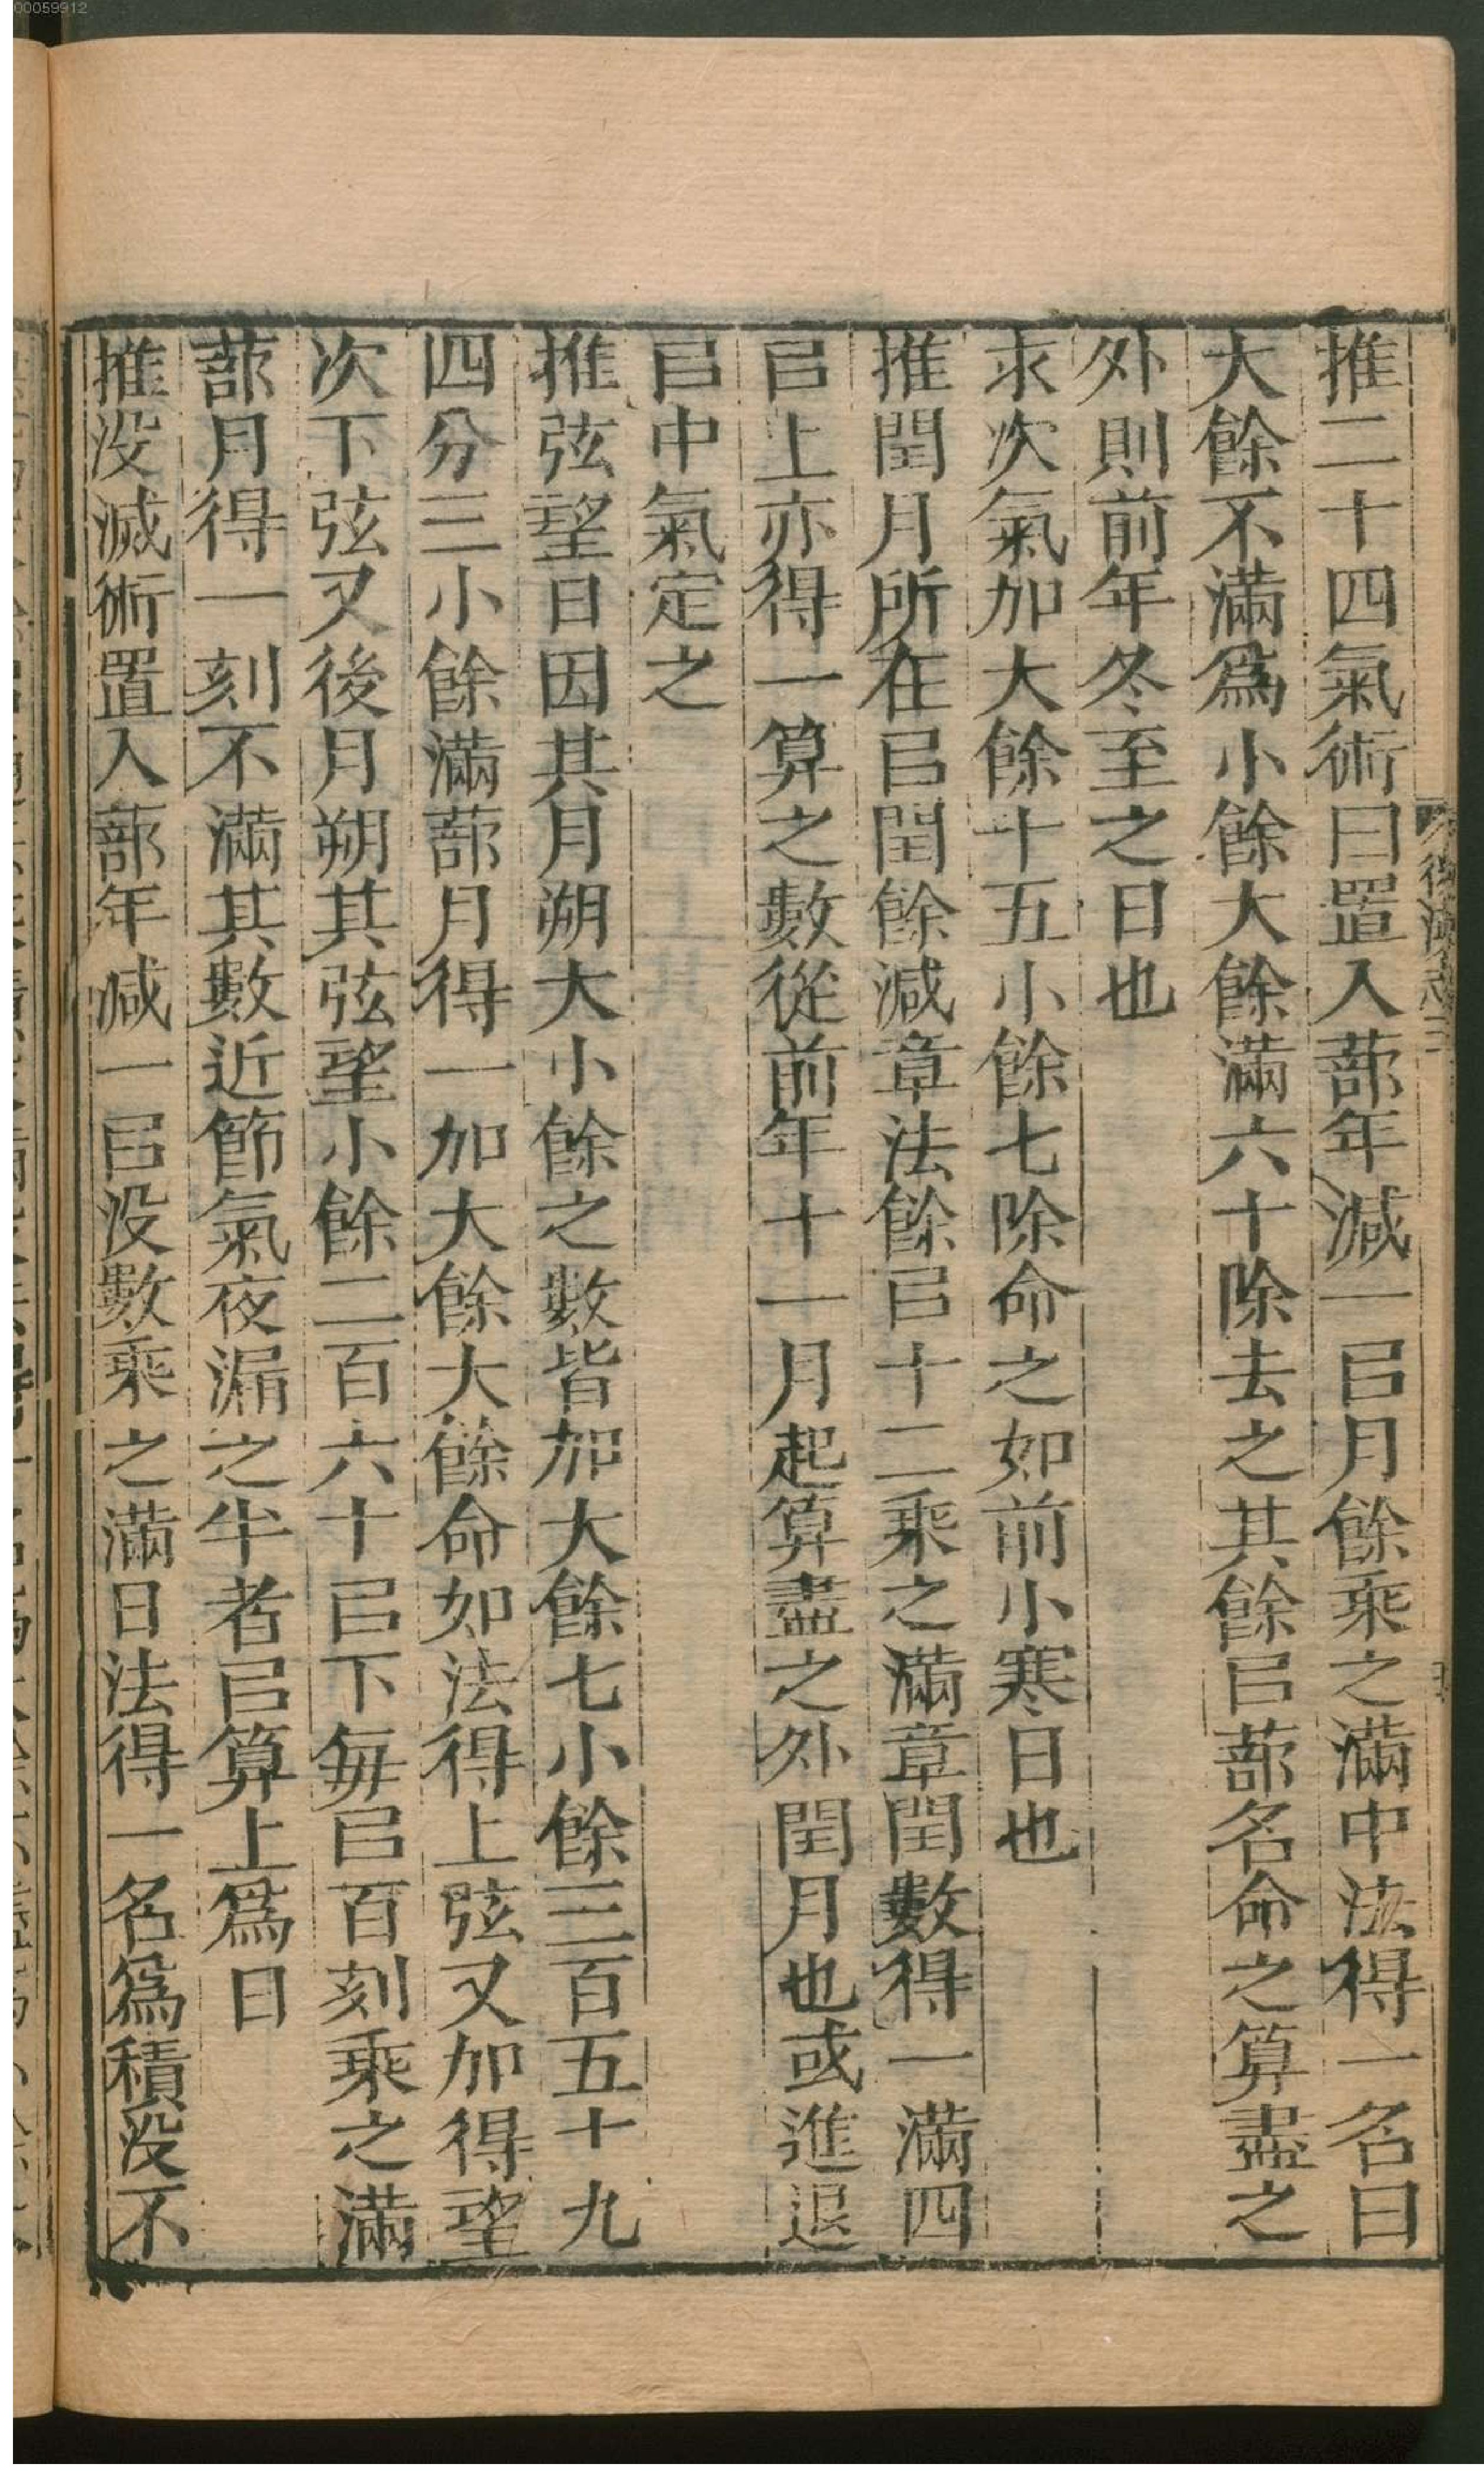 00059912
推二十四氣術曰置入蔀年減一㠯月餘乘之滿中法得一名曰
大餘不滿爲小餘大餘滿六十除去之其餘㠯蔀名命之算盡之
外則前年冬至之日也
求次氣加大餘十五小餘七除命之如前小寒日也
推閏月所在㠯閏餘減章法餘㠯十二乘之滿章閏數得一滿四
㠯上亦得一算之數從前年十一月起算盡之外閏月也或進退
㠯中氣定之
推弦望日因其月朔大小餘之數皆加大餘七小餘三百五十九
四分三小餘滿蔀月得一加大餘大餘命如法得上弦又加得望
次下弦又後月朔其弦望小餘二百六十㠯下每㠯百刻乘之滿
蔀月得一刻不滿其數近節氣夜漏之半者㠯算上爲日
推没滅術置入蔀年减一㠯没數乘之滿日法得一名爲積没不